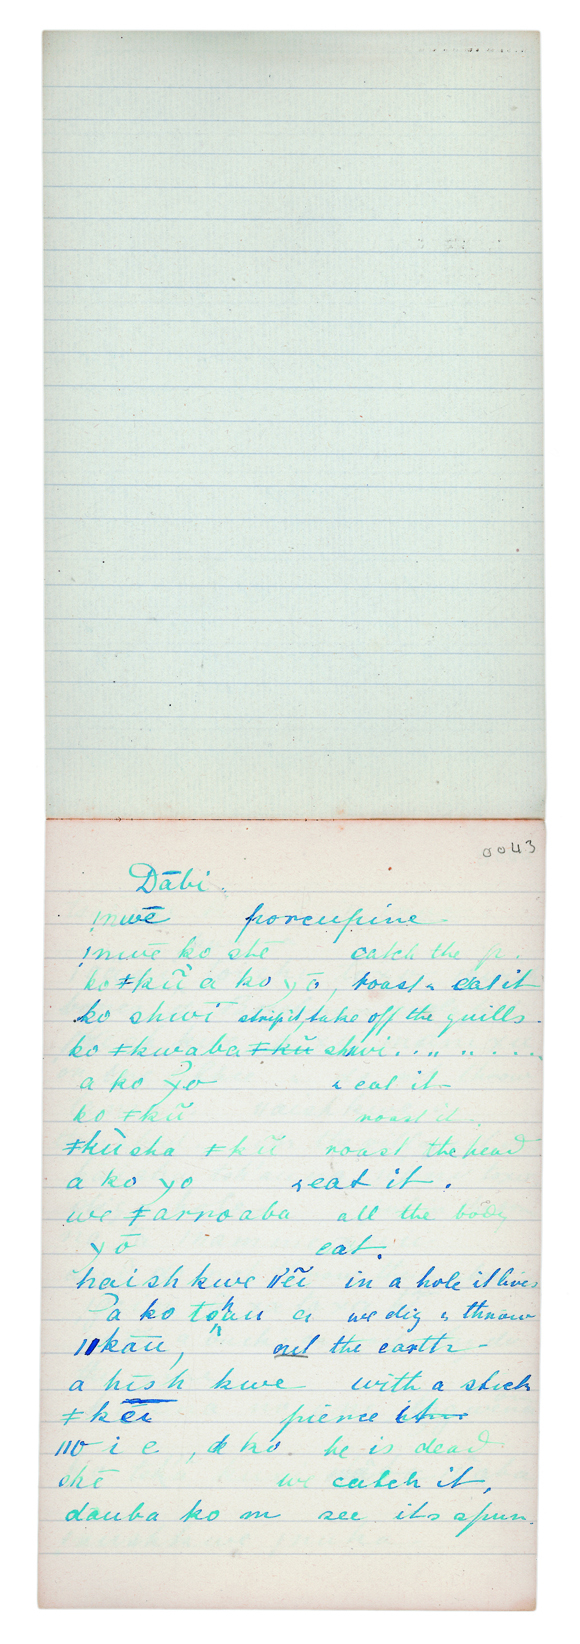 0043
Dābi.
!nwē porcupine -
!nwē ko shē catch the p.
ko ǂkŭ a ko yō, roast & eat it
ko shwi strip it, take off the quills.
ko ǂkwaba ǂkŭ shwi . . . . . . . .
a ko yo & eat it -
ko ǂkŭ roast it -
ǂkŭsha ǂkŭ roast the head
a ko yo & eat it.
we ǂarroaba all the body
yō eat.
haishkwe ǁēĭ in a hole it lives
a ko a we dig & throw
ǁkāu, out the earth -
a hīsh kwe with a stick
ǂkēī pierce
ie, ko. he is dead
shē we catch it,
dauba ko m see its spun.